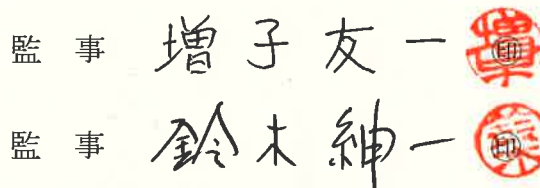 監 事 増 子 友 一 ㊞
監 事 鈴 木 紳 一 ㊞